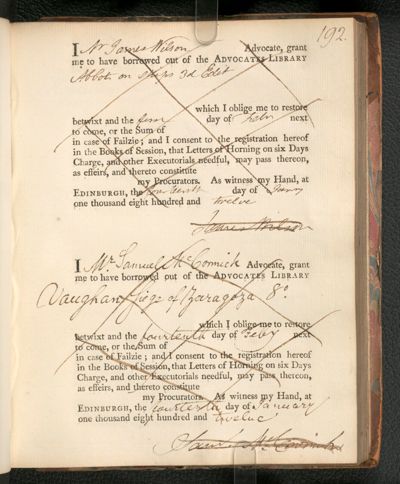 192.
I Mr James Wilson Advocate, grant
me to have borrowed out of the ADVOCATES LIBRARY
Abbot on Ships 3d Edit
which I oblige me to restore
betwixt and the day of next
to come, or the Sum of
in case of Failzie; and I consent to the registration hereof
in the Books of Session, that Letters of Horning on six Days
Charge, and other Executorials needful, may pass thereon,
as effeirs, and thereto constitute
my Procurators. As witness my Hand, at
EDINBURGH, the day of
one thousand eight hundred and twelve
James Wilson
I Mr. Samuel McCormick Advocate, grant
me to have borrowed out of the ADVOCATES LIBRARY
Vaughan Siege of Zaragoza 8o.
which I oblige me to restore
betwixt and the fourteenth day of Feby next
to come, or the Sum of
in case of Failzie; and I consent to the registration hereof
in the Books of Session, that Letters of Horning on six Days
Charge, and other Executorials needful, may pass thereon,
as effeirs, and thereto constitute
my Procurators. As witness my Hand, at
EDINBURGH, the fourteenth day of January
one thousand eight hundred and twelve
Saml McCormick